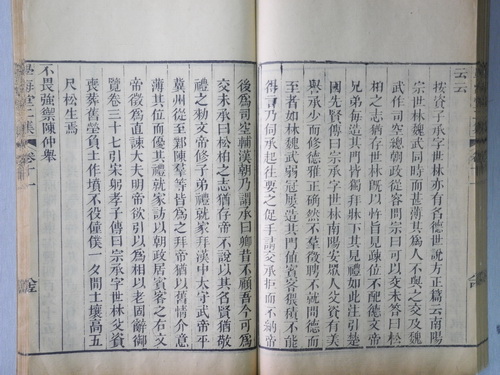 云云
按資子承字世林亦有名德世說方正篇云南陽
宗世林魏武同時而甚薄其爲人不與之交及魏
武作司空總朝政從容問宗曰可以交未答曰松
柏之志猶存世林旣以忤旨見疎位不配德文帝
兄弟每造其門皆獨拜牀下其見禮如此注引楚
國先賢傳曰宗承字世林南陽安眾人父資有美
譽承少而修德雅正確然不羣徵聘不就聞德而
至者如林魏武弱冠屢造其門值賓客猥積不能
得言乃伺承起往要之捉手請交承拒而不納帝
後爲司空輔漢朝乃謂承曰卿昔不顧吾今可爲
交未承曰松柏之志猶存帝不說以其名賢猶敬
禮之勑文帝修子弟禮就家拜漢中太守武帝平
冀州從至鄴陳羣等皆爲之拜帝猶以舊情介意
薄其位而優其禮就家訪以朝政居賓客之右文
帝徵爲直諫大夫明帝欲引以爲相以老固辭御
覽卷三十七引宋躬孝子傳曰宗承字世林父資
喪葬舊塋負土作墳不役僮僕一夕間土壤高五
尺松生焉
不畏強禦陳仲舉
學海堂二集 卷十一